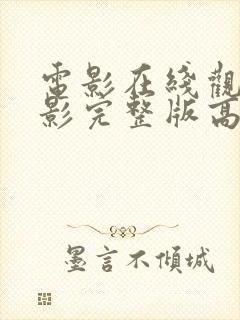 電影在綫觀
影完整版高
墨言不傾城